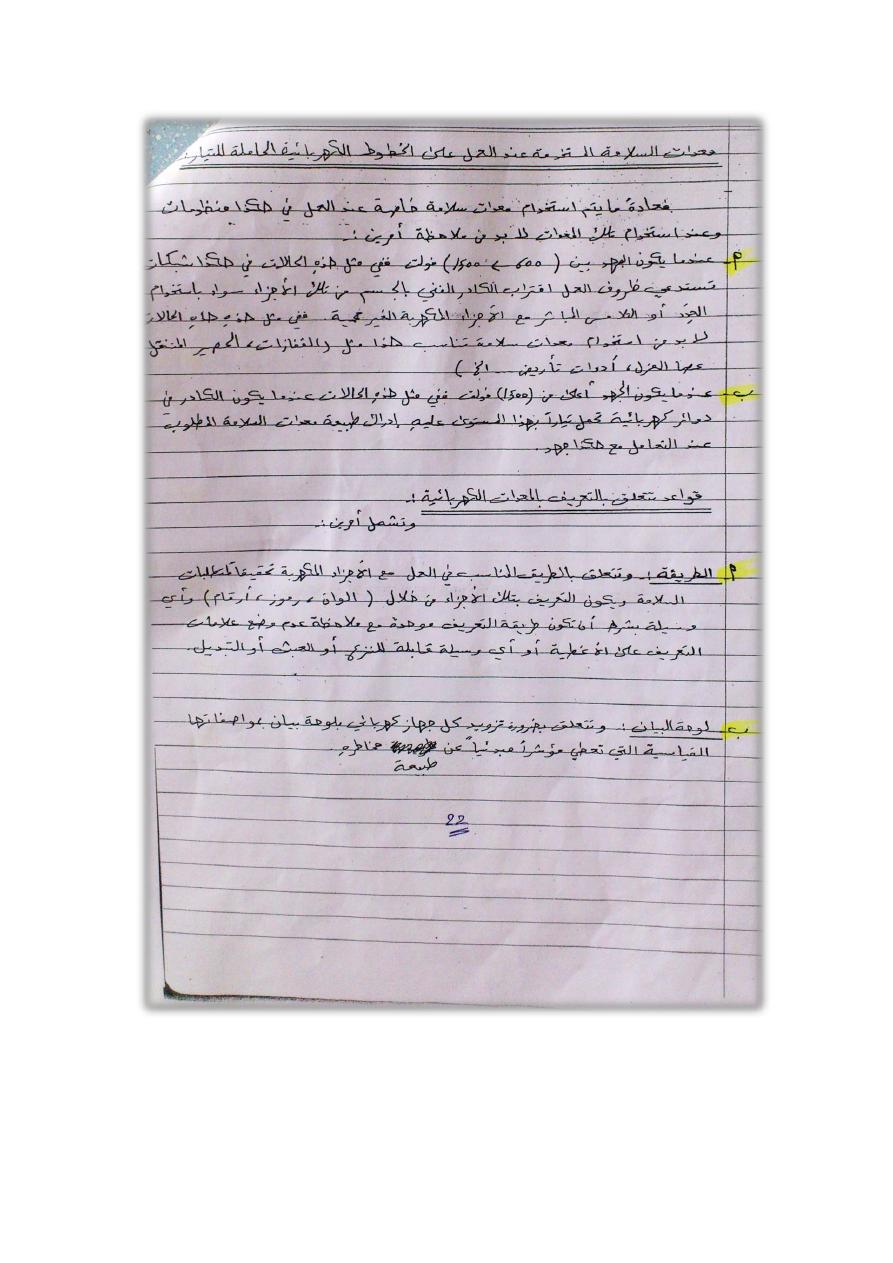 معدات السلامة المستخدمة عند العمل على الخطوط الكهربائية الحاملة للتيار:
فعادة ما يتم استخدام معدات سلامة خاصة عند العمل في هكذا منظومات
وعند استخدام تلك المعدات لا بد من ملاحظة أمرين :-
أ- عندما يكون الجهد بين ( 600 > 1500) فولت ففي مثل هذه الحالات في هكذا شبكات
تستدعي ظروف العمل اقتراب الكادر الفني بالجسم من تلك الأجزاء سواء باستخدام
العِدَد أو التلامس المباشر مع الأجزاء المكهربة الغير محمية. ففي مثل هذه الحالات
لا بد من استخدام معدات سلامة تناسب هذا مثل (القفازات، الحصير المتنقل
عصا العزل، أدوات تأريض ... الخ )
ب- عندما يكون الجهد أعلى من (1500) فولت ففي مثل هذه الحالات عندما يكون الكادر في
دوائر كهربائية تحمل تياراً بهذا المستوى عليه إدراك طبيعة معدات السلامة المطلوب
عند التعامل مع هكذا جهد.
قواعد تتعلق بالتعريف بالمعدات الكهربائية :-
وتشمل أمرين :-
أ- الطريقة :- وتتعلق بالطريق المناسب في العمل مع الأجزاء المكهربة تحقيقاً لمتطلبات
السلامة ويكون التعريف بتلك الأجزاء من خلال ( الوان ، رموز، أرقام ) وأي
وسيلة بشرط أن تكون طريقة التعريف موحدة مع ملاحظة عدم وضع علامات
التعريف على الأغطية أو أي وسيلة قابلة للنزع أو العبث أو التبديل.
ب- لوحة البيان : وتتعلق بضرورة تزويد كل جهاز كهربائي بلوحة بيان بمواصفاتها
القياسية التي تعطي مؤشراً مبدئياً عن مخاطره.
طبيعة
22